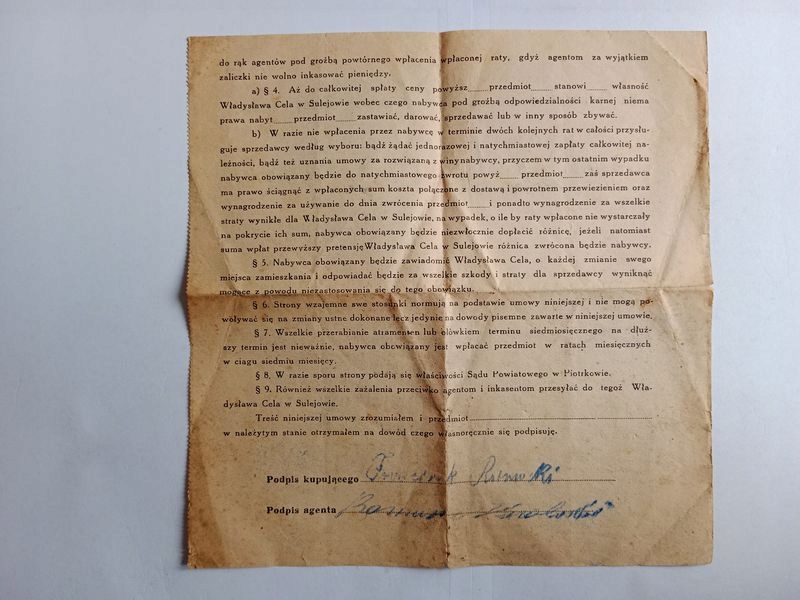 do rąk agentów pod groźbą powtórnego wpłacenia wpłaconej raty, gdyż agentom za wyjątkiem
zaliczki nie wolno inkasować pieniędzy.
a) § 4. Aż do całkowitej spłaty ceny powyższ......przedmiot......stanowi...... własność
Władysława Cela w Sulejowie wobec czego nabywca pod groźbą odpowiedzialności karnej niema
prawa nabyt......przedmiot......zastawiać, darować, sprzedawać lub w inny sposób zbywać.
b) W razie nie wpłacenia przez nabywcę w terminie dwóch kolejnych rat w całości przysłu-
guje sprzedawcy według wyboru: bądź żądać jednorazowej i natychmiastowej zapłaty całkowitej na-
leżności, bądź też uznania umowy za rozwiązaną z winy nabywcy, przyczem w tym ostatnim wypadku
nabywca obowiązany będzie do natychmiastowego zwrotu powyż......przedmiot...... zaś sprzedawca
ma prawo ściągnąć z wpłaconych sum koszta połączone z dostawą i powrotnem przewiezieniem oraz
wynagrodzenie za używanie do dnia zwrócenia przedmiot...... i ponadto wynagrodzenie za wszelkie
straty wynikłe dla Władysława Cela w Sulejowie, na wypadek, o ile by raty wpłacone nie wystarczały
na pokrycie ich sum, nabywca obowiązany będzie niezwłocznie dopłacić różnicę, jeżeli natomiast
suma wpłat przewyższy pretensję Władysława Cela w Sulejowie różnica zwrócona będzie nabywcy.
§ 5. Nabywca obowiązany będzie zawiadomić Władysława Cela, o każdej zmianie swego
miejsca zamieszkania i odpowiadać będzie za wszelkie szkody i straty dla sprzedawcy wyniknąć
mogące z powodu niezastosowania się do tego obowiązku.
§ 6. Strony wzajemne swe stosunki normują na podstawie umowy niniejszej i nie mogą po-
woływać się na zmiany ustne dokonane lecz jedynie na dowody pisemne zawarte w niniejszej umowie.
§ 7. Wszelkie przerabianie atramentem lub ołówkiem terminu siedmiosięcznego na dłuż-
szy termin jest nieważnie, nabywca obowiązany jest wpłacać przedmiot w ratach miesięcznych
w ciągu siedmiu miesięcy.
§ 8. W razie sporu strony podają się właściwości Sądu Powiatowego w Piotrkowie.
§ 9. Również wszelkie zażalenia przeciwko agentom i inkasentom przesyłać do tegoż Wła-
dysława Cela w Sulejowie.
Treść niniejszej umowy zrozumiałem i przedmiot......
w należytym stanie otrzymałem na dowód czego własnoręcznie się podpisuję.
Podpis kupującego
Podpis agenta